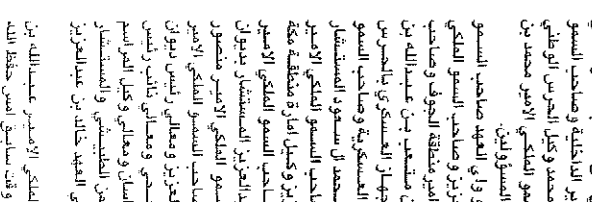 ير الداخلية وصاحب السمو
محمد وكيل الحرس الوطني
مو الملكي الامير محمد بن
المسؤولين.
ولي العهد صاحب السمو
زيز وصاحب السمو الملكي
امير منطقة الجوف وصاحب
ن متعب بن عبدالله بن
جهاز العسكري بالحرس
العسكرية وصاحب السمو
محمد ال سعود المستشار
احب السمو الملكي الامير
يز وكيل امارة منطقة مكة
احب السمو الملكي الامير
دالعزيز المستشار بديوان
سمو الملكي الامير منصور
صاحب السمو الملكي الامير
لعزيز ومعالي رئيس ديوان
حي ومعالي نائب رئيس
اسان ومعالي وكيل المراسم
من الطبيشي والمستشار
ي العهد خالد بن عبدالعزيز
لملكي الامير عبدالله بن
وقت سابق امس حفظ الله